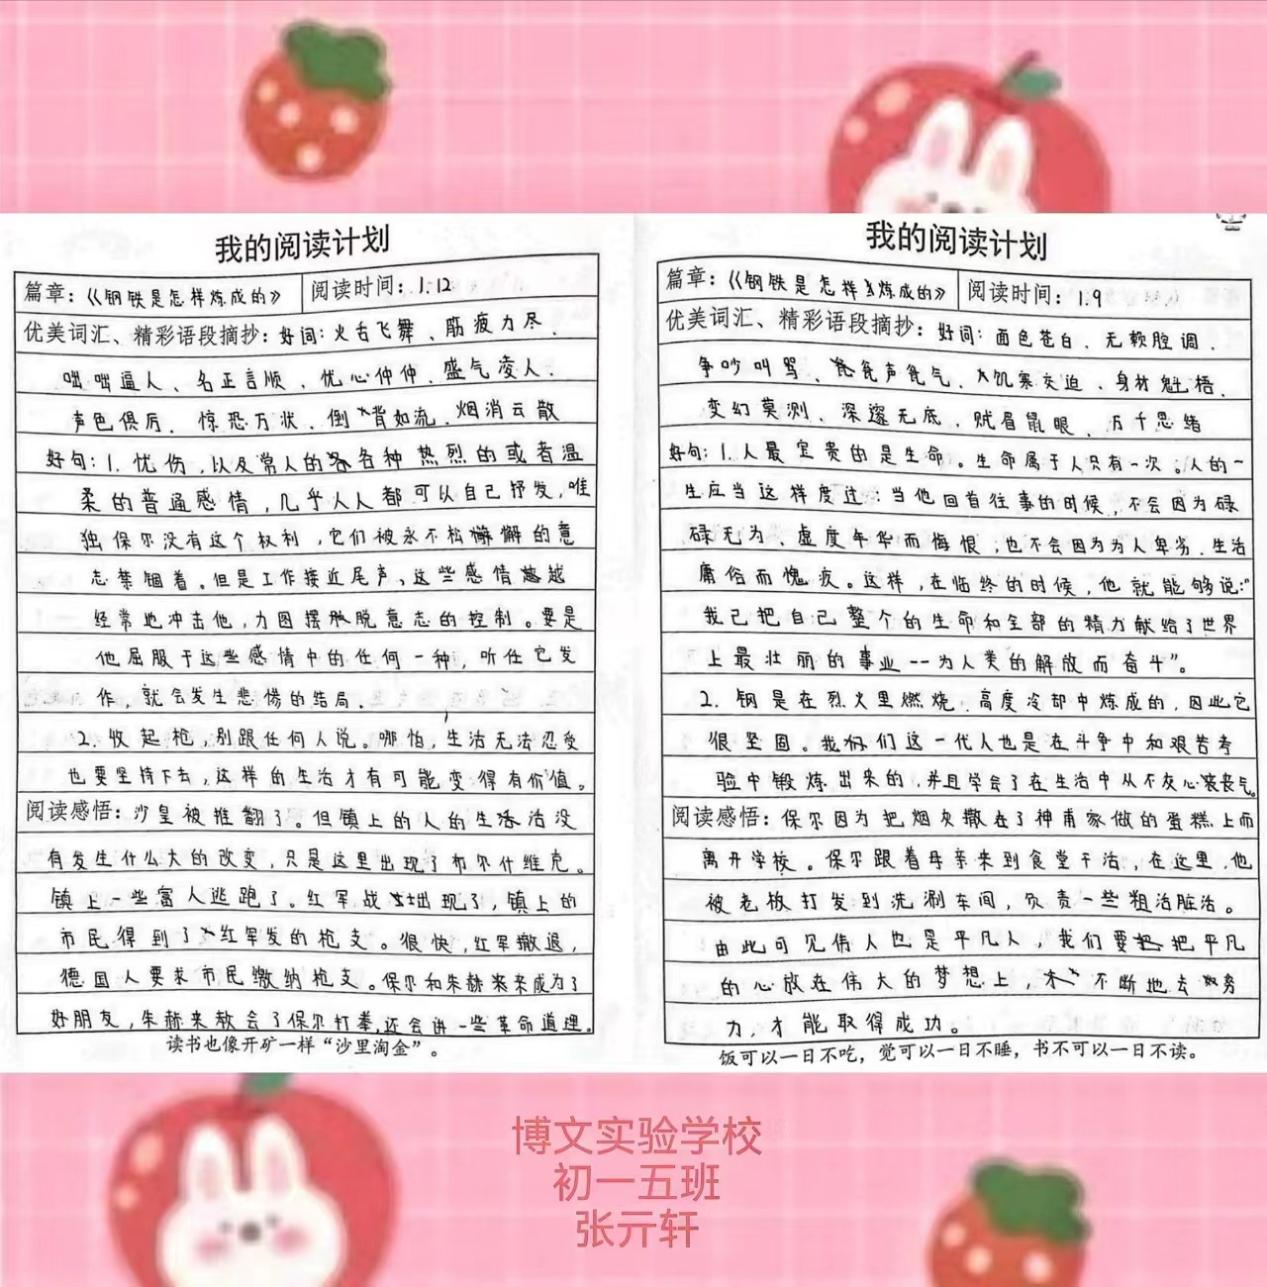 我的阅读计划
篇章：《钢铁是怎样炼成的》 阅读时间：1.12
优美词汇、精彩语段摘抄：好词：火舌飞舞、筋疲力尽、
咄咄逼人、名正言顺、忧心忡忡、盛气凌人、
声色俱厉、惊恐万状、倒背如流、烟消云散
好句：1.忧伤，以及常人的各种热烈的或者温
柔的普通感情，几乎人人都可以自己抒发，唯
独保尔没有这个权利，它们被永不松懈的意
志禁锢着。但是工作接近尾声，这些感情越
经常地冲击他，力图摆脱意志的控制。要是
他屈服于这些感情中的任何一种，听任它发
作，就会发生悲惨的结局.
2.收起枪，别跟任何人说。哪怕，生活无法忍受
也要坚持下去，这样的生活才有可能变得有价值。
阅读感悟：沙皇被推翻了。但镇上的人的生活没
有发生什么大的改变，只是这里出现了布尔什维克。
镇上一些富人逃跑了。红军战士出现了，镇上的
市民得到了红军发的枪支。很快，红军撤退，
德国人要求市民缴纳枪支。保尔和朱赫来成为了
好朋友，朱赫来教会了保尔打拳，还会讲一些革命道理。
读书也像开矿一样“沙里淘金”。
我的阅读计划
篇章：《钢铁是怎样炼成的》 阅读时间：1.9
优美词汇、精彩语段摘抄：好词：面色苍白、无赖腔调、
争吵叫骂、声食气、饥寒交迫、身材魁梧、
变幻莫测、深邃无底、贼眉鼠眼、万千思绪
好句：1.人最宝贵的是生命。生命属于人只有一次。人的一
生应当这样度过：当他回首往事的时候，不会因为碌
碌无为、虚度年华而悔恨，也不会因为为人卑劣、生活
庸俗而愧疚。这样，在临终的时候，他就能够说：“
我已把自己整个的生命和全部的精力献给了世界
上最壮丽的事业--为人类的解放而奋斗”。
2.钢是在烈火里燃烧、高度冷却中炼成的，因此它
很坚固。我们这一代人也是在斗争中和艰苦考
验中锻炼出来的，并且学会了在生活中从不灰心丧气。
阅读感悟：保尔因为把烟灰撒在了神甫家做的蛋糕上而
离开学校。保尔跟着母亲来到食堂干活，在这里，他
被老板打发到洗涮车间，负责一些粗活脏活。
由此可见伟人也是平凡人，我们要把平凡
的心放在伟大的梦想上，不断地去努
力，才能取得成功。
饭可以一日不吃，觉可以一日不睡，书不可以一日不读。
博文实验学校
初一五班
张亓轩